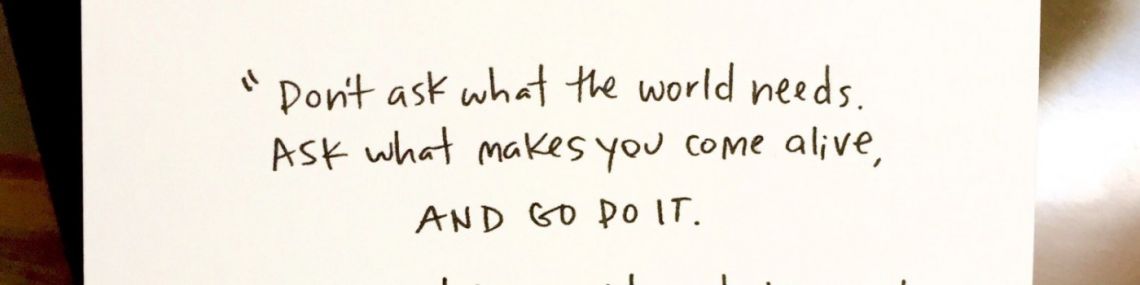 “Don't ask what the world needs.
Ask what makes you come alive,
AND GO DO IT.